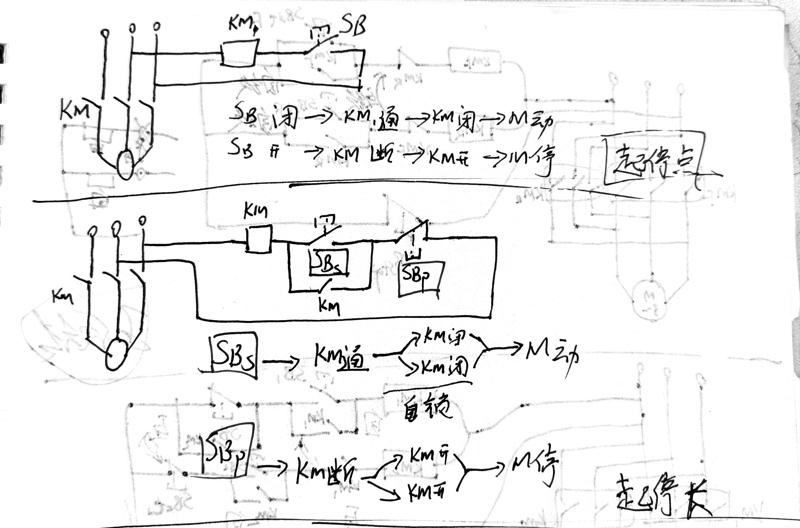 KM SB
KM
SB 闭 → KM 通 → KM 闭 → M 动
SB 开 → KM 断 → KM 开 → M 停
起停点
KM
SBs
SBp
KM
KM
SBs → KM 通 → KM 闭 → M 动
KM 闭
自锁
SBp → KM 断 → KM 开 → M 停
KM 开
起停 长